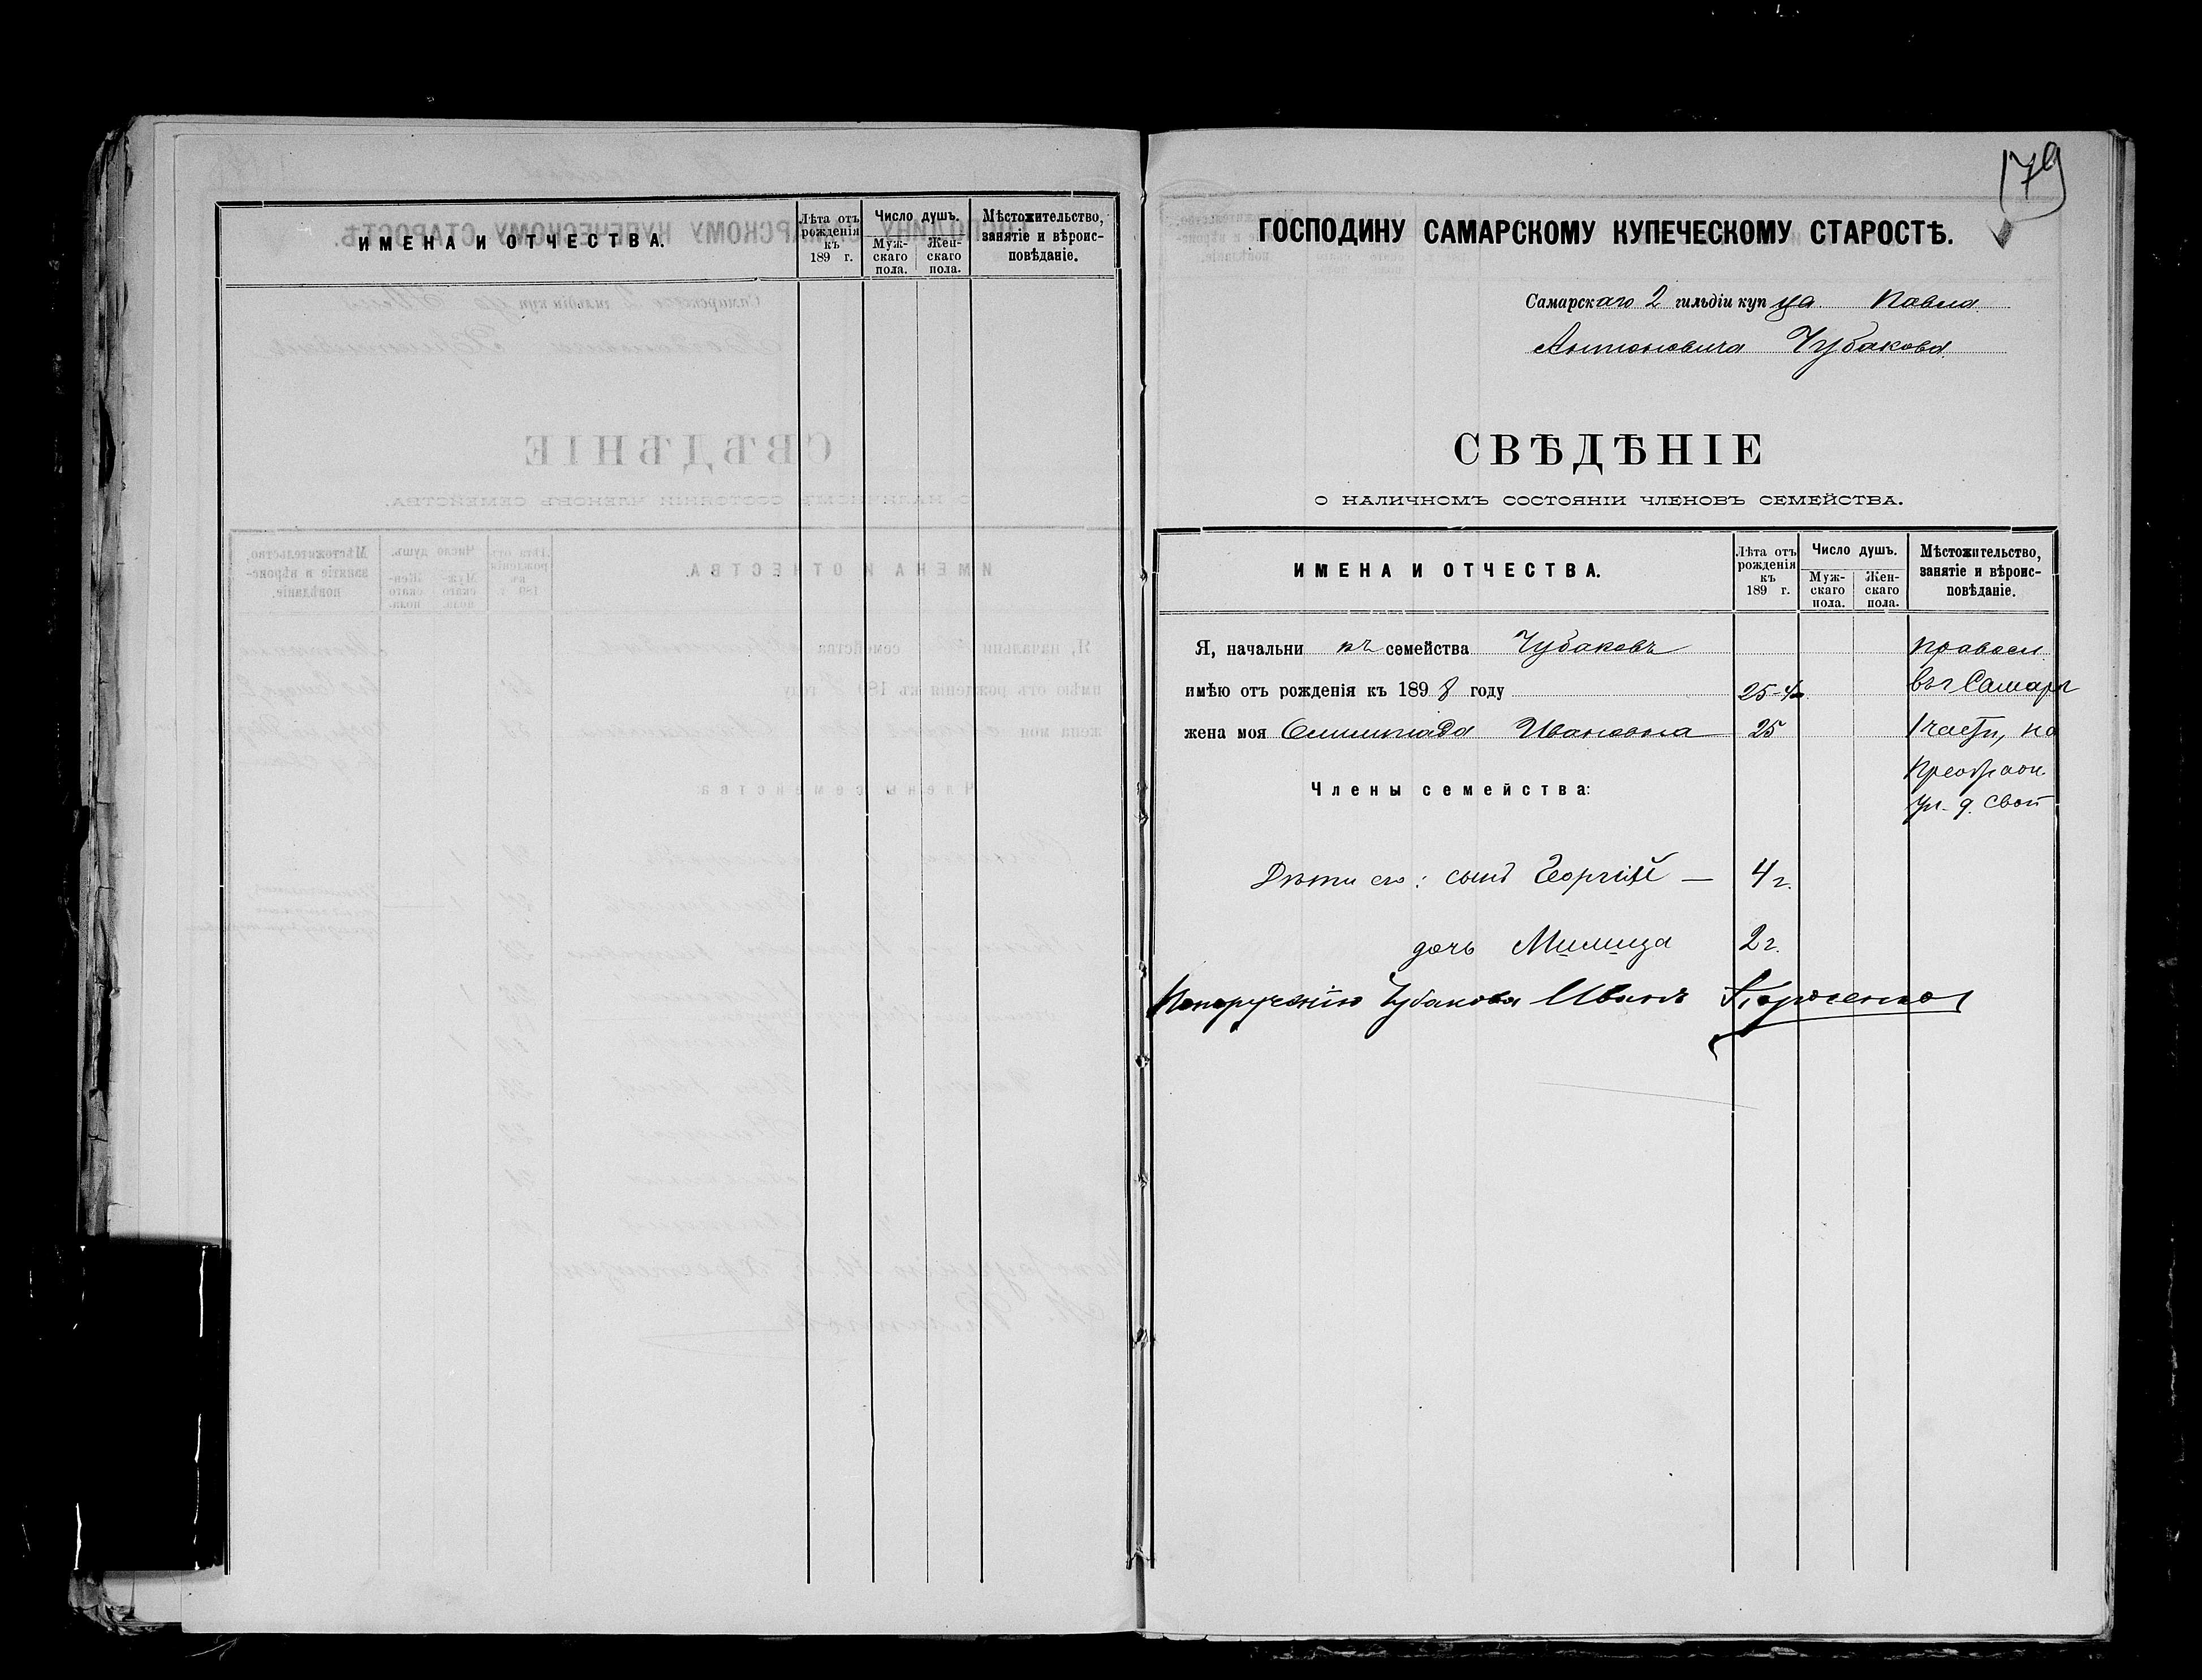 ИМЕНА И ОТЧЕСТВА.
Лѣта отъ рожденія къ 189 г.
Число душъ.
Мужскаго пола.
Женскаго пола.
Мѣстожительство, занятіе и вѣроисповѣданіе.
179
ГОСПОДИНУ САМАРСКОМУ КУПЕЧЕСКОМУ СТАРОСТѢ.
Самарскаго 2 гильдіи купца Павла
Антоновича Чубакова
СВѢДѢНІЕ
О НАЛИЧНОМЪ СОСТОЯНІИ ЧЛЕНОВЪ СЕМЕЙСТВА.
ИМЕНА И ОТЧЕСТВА.
Лѣта отъ рожденія къ 189 г.
Число душъ.
Мужскаго пола.
Женскаго пола.
Мѣстожительство, занятіе и вѣроисповѣданіе.
Я, начальникъ семейства Чубаковъ правосл.
имѣю отъ рожденія къ 1898 году 25 въ г Самарѣ
жена моя Олимпіада Ивановна 25 1 части, на
Преображ.
Члены семейства:
ул. д. свой
Дѣти его: сынъ Георгій — 4 г.
дочь Милица 2 г.
По порученію Чубакова Иванъ